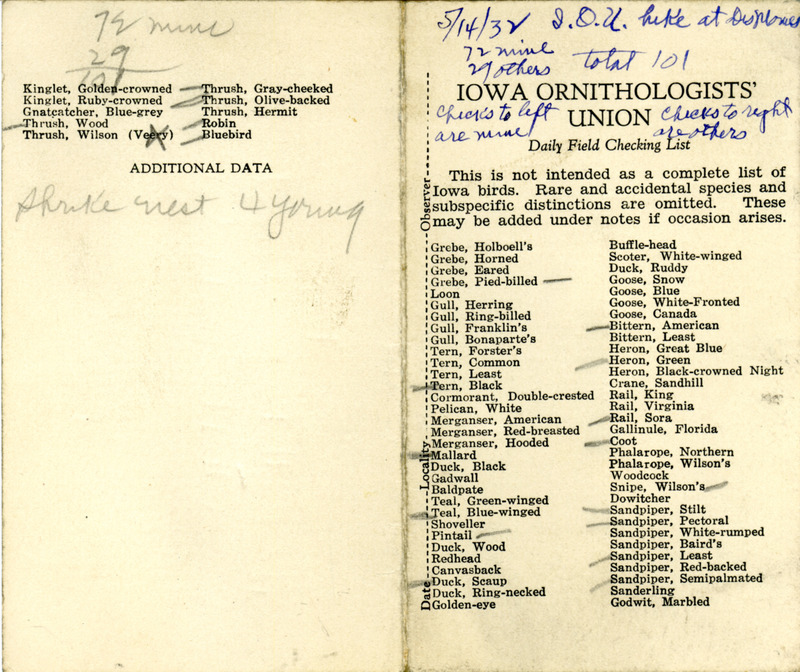 72 mine
29
101
Kinglet, Golden-crowned
Kinglet, Ruby-crowned
Gnatcatcher, Blue-grey
Thrush, Wood
Thrush, Wilson (Veery)
Thrush, Gray-cheeked
Thrush, Olive-backed
Thrush, Hermit
Robin
Bluebird
ADDITIONAL DATA
Shrike nest 4 young
5/14/32 I.O.U. hike at
72 mine
29 others total 101
IOWA ORNITHOLOGISTS'
UNION
checks to left
are mine
checks to right
are others
Daily Field Checking List
This is not intended as a complete list of
Iowa birds. Rare and accidental species and
subspecific distinctions are omitted. These
may be added under notes if occasion arises.
Date Locality Observer
Grebe, Holboell's
Grebe, Horned
Grebe, Eared
Grebe, Pied-billed
Loon
Gull, Herring
Gull, Ring-billed
Gull, Franklin's
Gull, Bonaparte's
Tern, Forster's
Tern, Common
Tern, Least
Tern, Black
Cormorant, Double-crested
Pelican, White
Merganser, American
Merganser, Red-breasted
Merganser, Hooded
Mallard
Duck, Black
Gadwall
Baldpate
Teal, Green-winged
Teal, Blue-winged
Shoveller
Pintail
Duck, Wood
Redhead
Canvasback
Duck, Scaup
Duck, Ring-necked
Golden-eye
Buffle-head
Scoter, White-winged
Duck, Ruddy
Goose, Snow
Goose, Blue
Goose, White-Fronted
Goose, Canada
Bittern, American
Bittern, Least
Heron, Great Blue
Heron, Green
Heron, Black-crowned Night
Crane, Sandhill
Rail, King
Rail, Virginia
Rail, Sora
Gallinule, Florida
Coot
Phalarope, Northern
Phalarope, Wilson's
Woodcock
Snipe, Wilson's
Dowitcher
Sandpiper, Stilt
Sandpiper, Pectoral
Sandpiper, White-rumped
Sandpiper, Baird's
Sandpiper, Least
Sandpiper, Red-backed
Sandpiper, Semipalmated
Sanderling
Godwit, Marbled